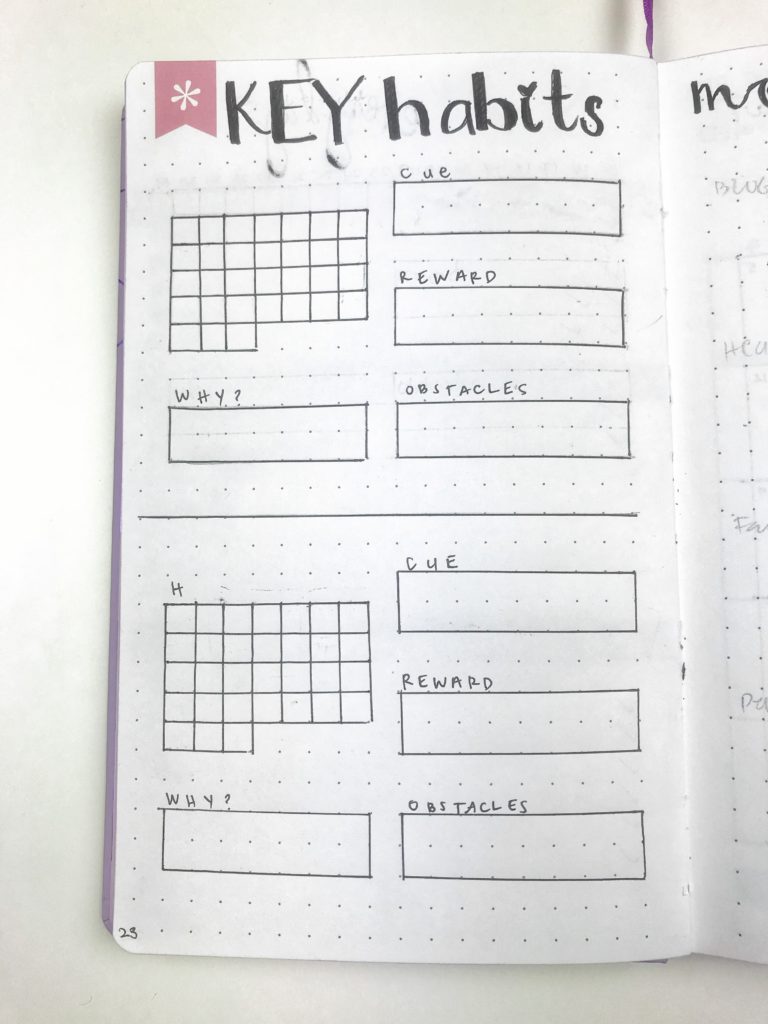 * KEY habits
CUE
REWARD
WHY?
OBSTACLES
H
CUE
REWARD
WHY?
OBSTACLES
23
mo
BLOG